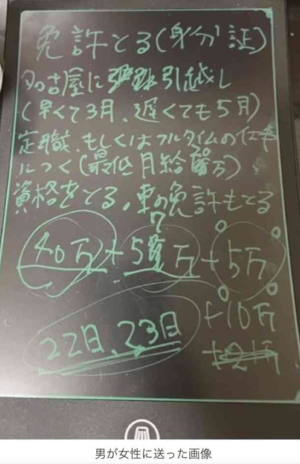 免許とる(身分証)
名古屋に引越し
(早くて3月、遅くても5月)
定職、もしくはフルタイムの仕事
につく(最低月給万)
資格をとる。車の免許もとる
40万+5万+5万
+10万
22日、23日
男が女性に送った画像